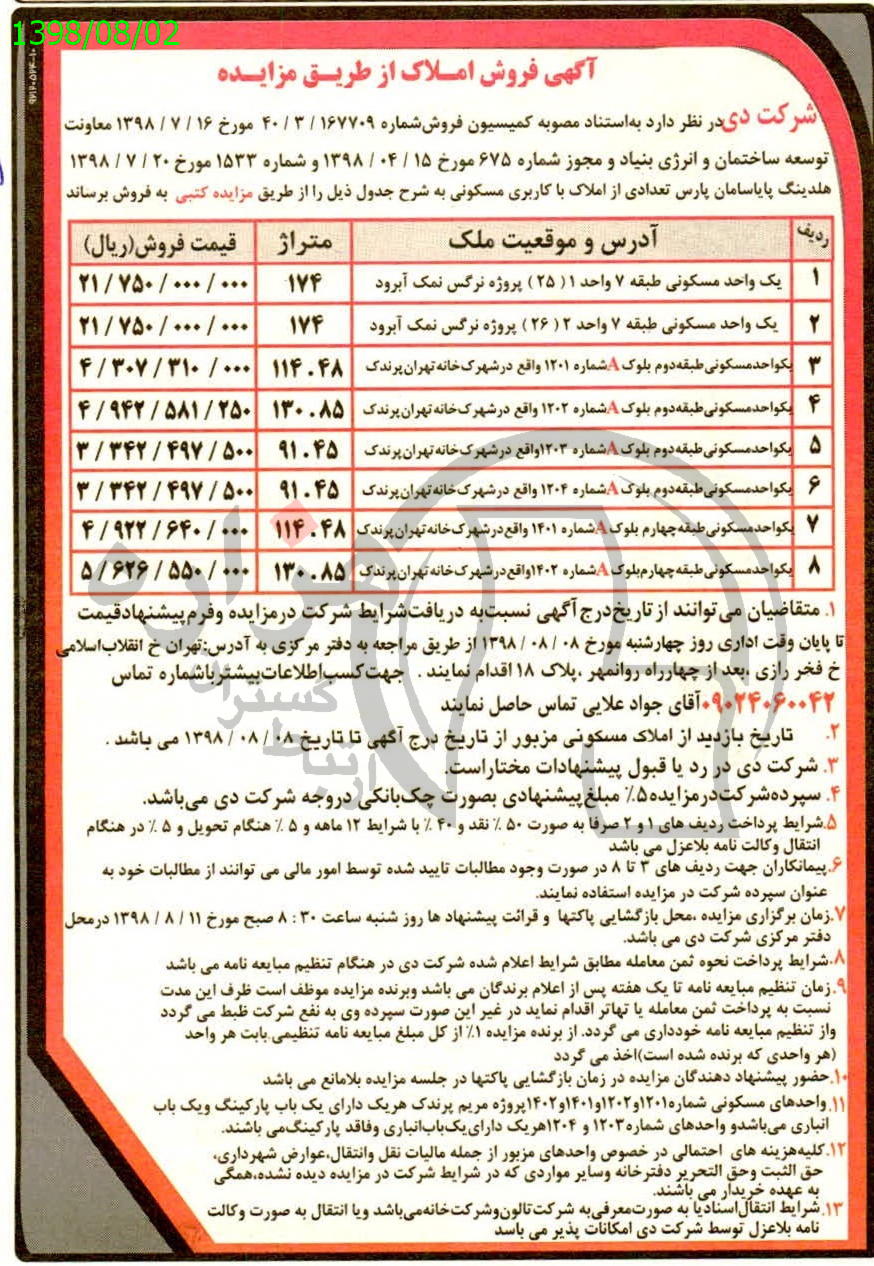 1398/08/02
آگهی فروش املاک از طریق مزایده
شرکت دی در نظر دارد به‌استناد مصوبه کمیسیون فروش‌شماره ۱۶۷۷۰۹ / ۳ / ۴۰ مورخ ۱۶ / ۷ / ۱۳۹۸ معاونت
توسعه ساختمان و انرژی بنیاد و مجوز شماره ۶۷۵ مورخ ۱۵ / ۰۴ / ۱۳۹۸ و شماره ۱۵۳۳ مورخ ۲۰ / ۷ / ۱۳۹۸
هلدینگ پایاسامان پارس تعدادی از املاک با کاربری مسکونی به شرح جدول ذیل را از طریق مزایده کتبی به فروش برساند
ردیف آدرس و موقعیت ملک متراژ قیمت فروش(ریال)
۱ یک واحد مسکونی طبقه ۷ واحد ۱ ( ۲۵ ) پروژه نرگس نمک آبرود ۱۷۴ ۲۱ / ۷۵۰ / ۰۰۰ / ۰۰۰
۲ یک واحد مسکونی طبقه ۷ واحد ۲ ( ۲۶ ) پروژه نرگس نمک آبرود ۱۷۴ ۲۱ / ۷۵۰ / ۰۰۰ / ۰۰۰
۳ یکواحدمسکونی‌طبقه‌دوم بلوک A شماره ۱۲۰۱ واقع درشهرک‌خانه‌تهران‌پرندک ۱۱۴.۴۸ ۴ / ۳۰۷ / ۳۱۰ / ۰۰۰
۴ یکواحدمسکونی‌طبقه‌دوم بلوک A شماره ۱۲۰۲ واقع درشهرک‌خانه‌تهران‌پرندک ۱۳۰.۸۵ ۴ / ۹۴۲ / ۵۸۱ / ۲۵۰
۵ یکواحدمسکونی‌طبقه‌دوم بلوک A شماره ۱۲۰۳واقع درشهرک‌خانه‌تهران‌پرندک ۹۱.۴۵ ۳ / ۳۴۲ / ۴۹۷ / ۵۰۰
۶ یکواحدمسکونی‌طبقه‌دوم بلوک A شماره ۱۲۰۴ واقع درشهرک‌خانه‌تهران‌پرندک ۹۱.۴۵ ۳ / ۳۴۲ / ۴۹۷ / ۵۰۰
۷ یکواحدمسکونی‌طبقه‌چهارم بلوک A شماره ۱۴۰۱ واقع‌درشهرک‌خانه‌تهران‌پرندک ۱۱۴.۴۸ ۴ / ۹۲۲ / ۶۴۰ / ۰۰۰
۸ یکواحدمسکونی‌طبقه‌چهارم‌بلوک A شماره ۱۴۰۲واقع‌درشهرک‌خانه‌تهران‌پرندک ۱۳۰.۸۵ ۵ / ۶۲۶ / ۵۵۰ / ۰۰۰
۱. متقاضیان می‌توانند از تاریخ‌درج‌آگهی نسبت‌به دریافت‌شرایط شرکت درمزایده وفرم‌پیشنهادقیمت
تا پایان وقت اداری روز چهارشنبه مورخ ۰۸ / ۰۸ / ۱۳۹۸ از طریق مراجعه به دفتر مرکزی به آدرس:تهران خ انقلاب‌اسلامی
خ فخر رازی ،بعد از چهارراه روانمهر ،پلاک ۱۸ اقدام نمایند . جهت‌کسب‌اطلاعات‌بیشترباشماره تماس
۰۹۰۲۴۰۶۰۰۴۲ آقای جواد علایی تماس حاصل نمایند
۲. تاریخ بازدید از املاک مسکونی مزبور از تاریخ درج آگهی تا تاریخ ۰۸ / ۰۸ / ۱۳۹۸ می باشد .
۳. شرکت دی در رد یا قبول پیشنهادات مختاراست.
۴. سپرده‌شرکت‌درمزایده۵٪ مبلغ‌پیشنهادی بصورت چک‌بانکی دروجه شرکت دی می‌باشد.
۵.شرایط پرداخت ردیف های ۱ و ۲ صرفا به صورت ۵۰ ٪ نقد و ۴۰ ٪ با شرایط ۱۲ ماهه و ۵ ٪ هنگام تحویل و ۵ ٪ در هنگام
انتقال وکالت نامه بلاعزل می باشد
۶.پیمانکاران جهت ردیف های ۳ تا ۸ در صورت وجود مطالبات تایید شده توسط امور مالی می توانند از مطالبات خود به
عنوان سپرده شرکت در مزایده استفاده نمایند.
۷.زمان برگزاری مزایده ،محل بازگشایی پاکتها و قرائت پیشنهاد ها روز شنبه ساعت ۳۰ : ۸ صبح مورخ ۱۱ / ۸ / ۱۳۹۸ درمحل
دفتر مرکزی شرکت دی می باشد.
۸.شرایط پرداخت نحوه ثمن معامله مطابق شرایط اعلام شده شرکت دی در هنگام تنظیم مبایعه نامه می باشد
۹.زمان تنظیم مبایعه نامه تا یک هفته پس از اعلام برندگان می باشد وبرنده مزایده موظف است ظرف این مدت
نسبت به پرداخت ثمن معامله یا تهاتر اقدام نماید در غیر این صورت سپرده وی به نفع شرکت ظبط می گردد
واز تنظیم مبایعه نامه خودداری می گردد. از برنده مزایده ۱٪ از کل مبلغ مبایعه نامه تنظیمی.بابت هر واحد
(هر واحدی که برنده شده است)اخذ می گردد
۱۰.حضور پیشنهاد دهندگان مزایده در زمان بازگشایی پاکتها در جلسه مزایده بلامانع می باشد
۱۱.واحدهای مسکونی شماره۱۲۰۱و۱۲۰۲و۱۴۰۱و۱۴۰۲پروژه مریم پرندک هریک دارای یک باب پارکینگ ویک باب
انباری می‌باشدو واحدهای شماره۱۲۰۳ و ۱۲۰۴هریک دارای‌یک‌باب‌انباری وفاقد پارکینگ‌می باشند.
۱۲.کلیه‌هزینه های احتمالی در خصوص واحدهای مزبور از جمله مالیات نقل وانتقال،عوارض شهرداری،
حق الثبت وحق التحریر دفترخانه وسایر مواردی که در شرایط شرکت در مزایده دیده نشده،همگی
به عهده خریدار می باشند.
۱۳.شرایط انتقال‌اسنادیا به صورت‌معرفی‌به شرکت‌تالون‌وشرکت‌خانه‌می‌باشد ویا انتقال به صورت وکالت
نامه بلاعزل توسط شرکت دی امکانات پذیر می باسد